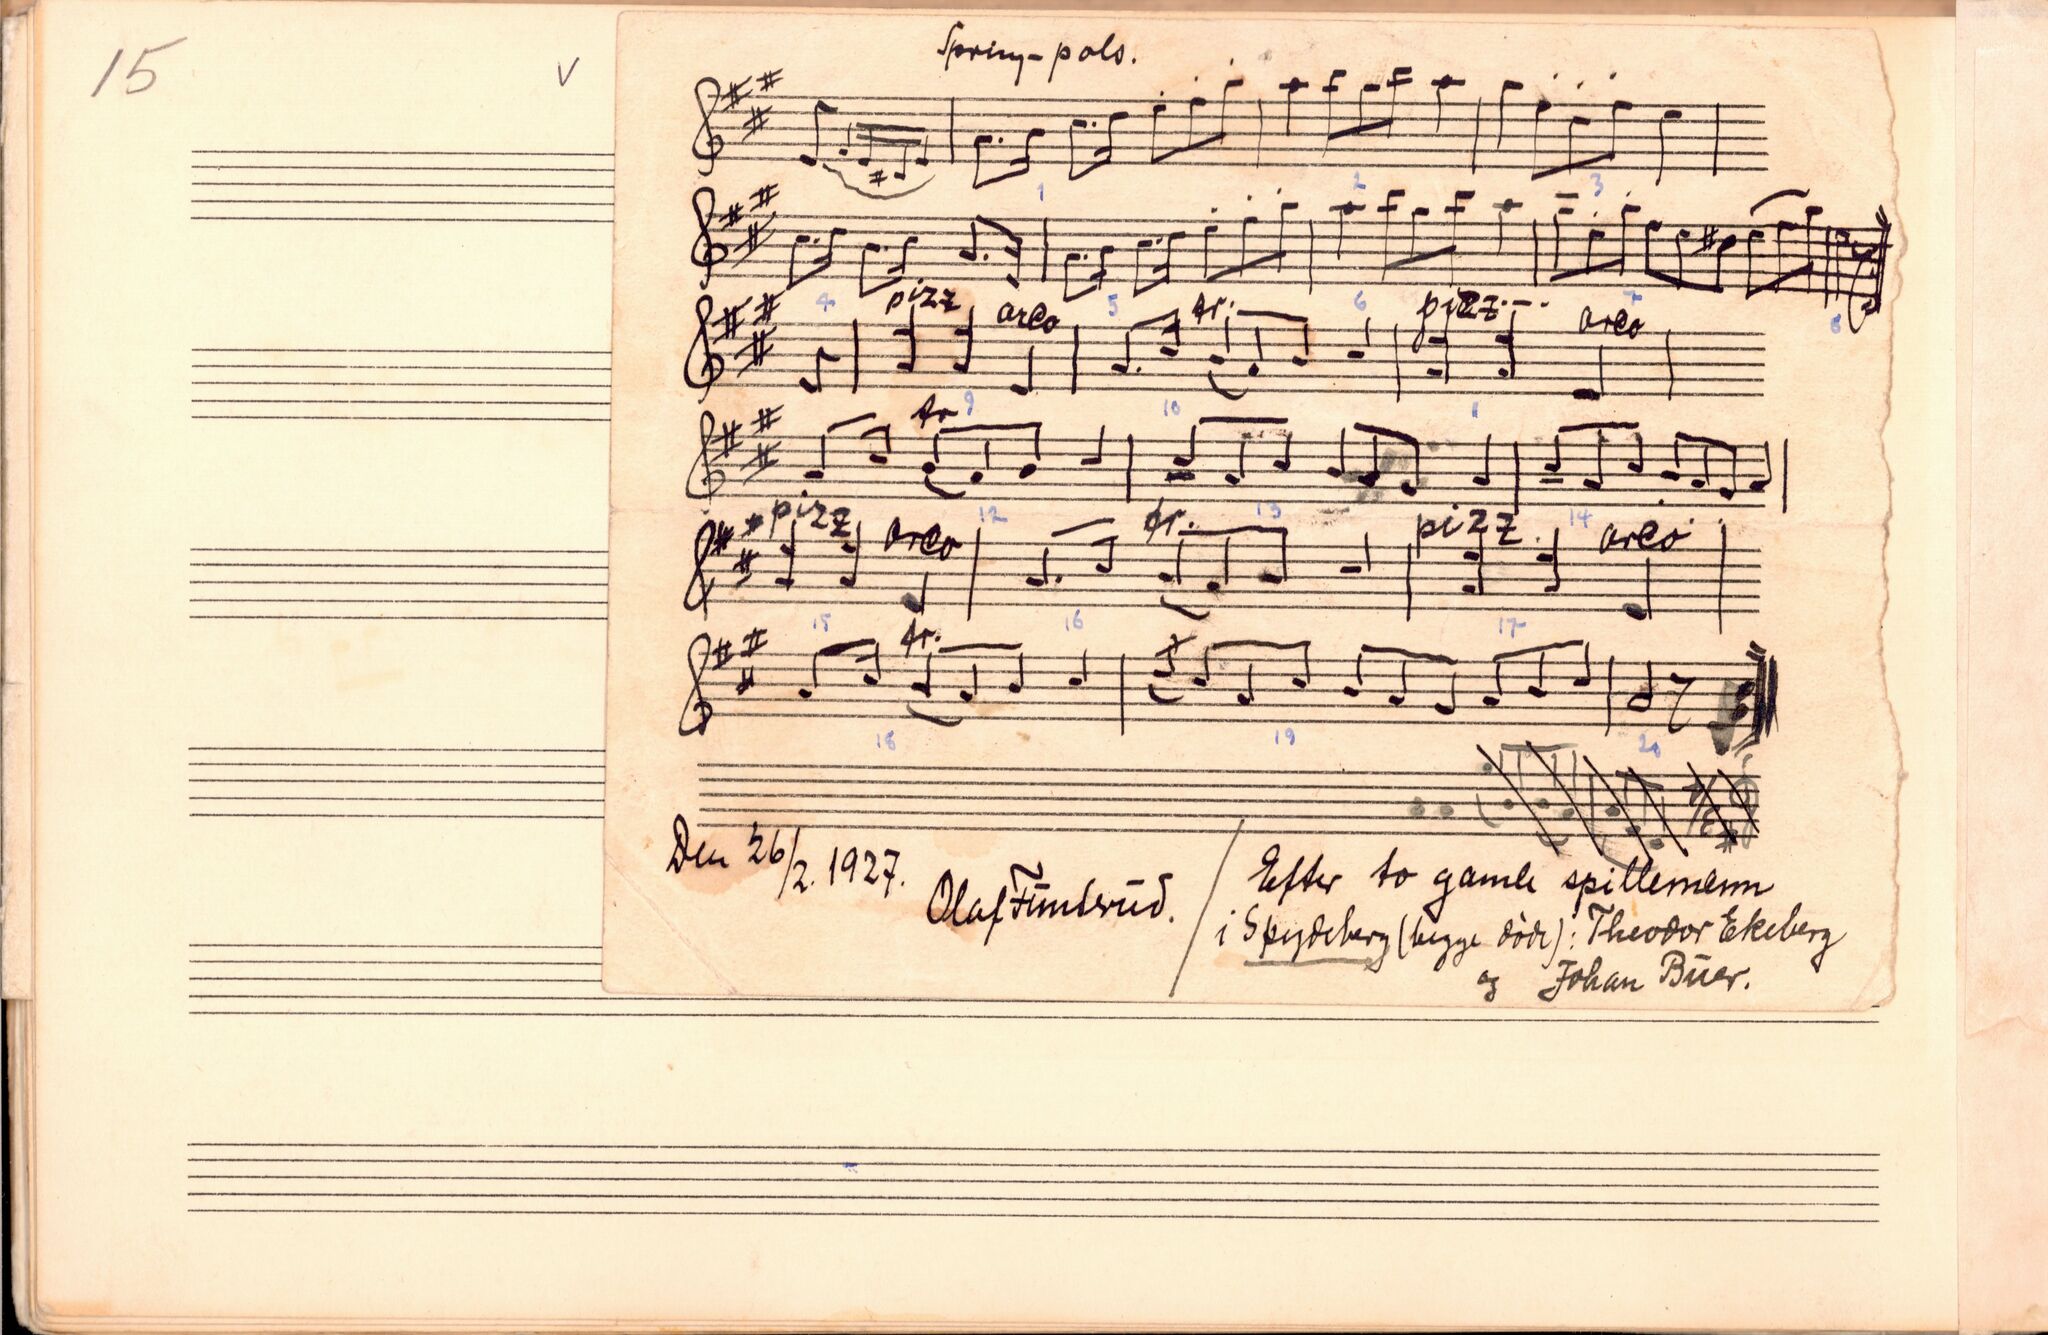 15
v
Spring-pols.
1 2 3
4 5 6 7 8
pizz arco tr. pizz. arco
9 10 11
tr
12 13 14
pizz arco tr. pizz. arco
15 16 17
tr.
18 19 20
Den 26/2. 1927.
Olaf Funderud.
Efter to gamle spillemenn
i Spydeberg (begge døde): Theodor Ekeberg
og Johan Buer.